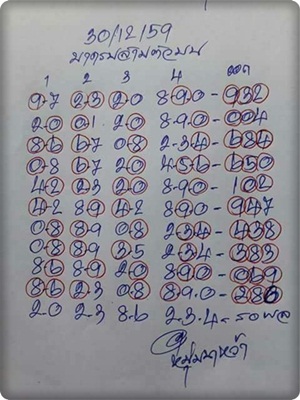 30/12/59
มาตรมสามตัวบน
1 2 3 4 ออก
9-7 2-3 2-0 8-9-0 - 932
2-0 0-1 2-0 8-9-0 - 004
8-6 6-7 0-8 2-3-4 - 684
0-8 6-7 2-0 4-5-6 - 650
4-2 2-3 2-0 8-9-0 - 102
4-2 8-9 4-2 8-9-0 - 947
0-8 8-9 0-8 2-3-4 - 438
0-8 8-9 3-5 2-3-4 - 383
8-6 8-9 2-0 8-9-0 - 069
8-6 2-3 0-8 8-9-0 - 286
2-0 2-3 8-6 2-3-4 = รอผล